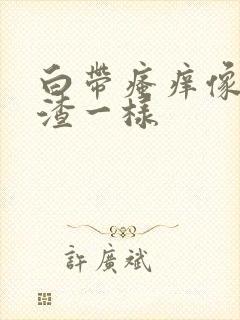 白帶瘙痒像
渣一樣
許廣斌